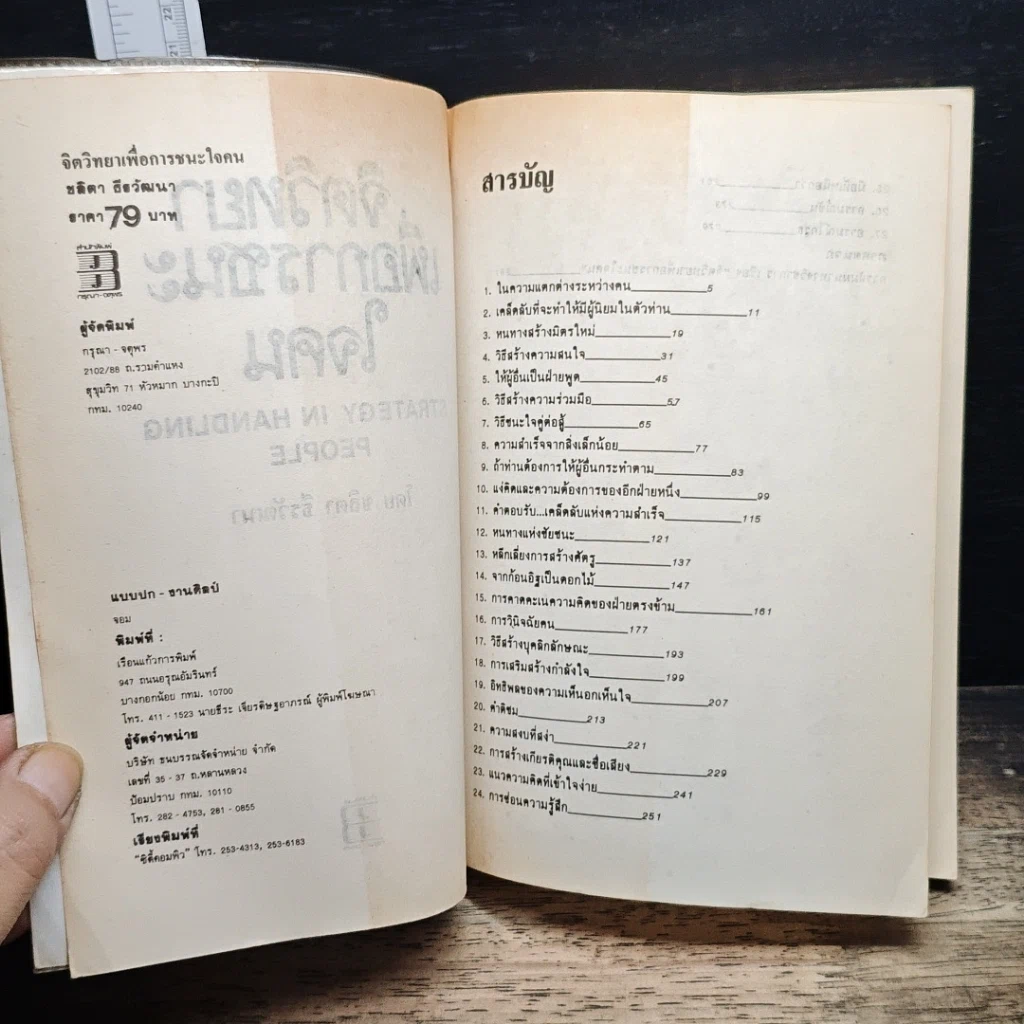 22
21
จิตวิทยาเพื่อการชนะใจคน
ชลิตา ธีรวัฒนา
ราคา 79 บาท
สำนักพิมพ์
กรุณา-จตุพร
ผู้จัดพิมพ์
กรุณา - จตุพร
2102/88 ถ.รามคำแหง
สุขุมวิท 71 หัวหมาก บางกะปิ
กทม. 10240
จิตวิทยา
เพื่อการชนะ
ใจคน
STRATEGY IN HANDLING
PEOPLE
โดย ชลิตา ธีรวัฒนา
แบบปก - ธานศิลป์
จอม
พิมพ์ที่ :
เรือนแก้วการพิมพ์
947 ถนนอรุณอัมรินทร์
บางกอกน้อย กทม. 10700
โทร. 411 - 1523 นายธีระ เจียรดิษฐอาภรณ์ ผู้พิมพ์โฆษณา
ผู้จัดจำหน่าย
บริษัท ธนบรรณจัดจำหน่าย จำกัด
เลขที่ 35 - 37 ถ.หลานหลวง
ป้อมปราบ กทม. 10110
โทร. 282 - 4753, 281 - 0855
เรียงพิมพ์ที่
"ซิตี้คอมพิว" โทร. 253-4313, 253-6183
สารบัญ
1. ในความแตกต่างระหว่างคน 5
2. เคล็ดลับที่จะทำให้มีผู้นิยมในตัวท่าน 11
3. หนทางสร้างมิตรใหม่ 19
4. วิธีสร้างความสนใจ 31
5. ให้ผู้อื่นเป็นฝ่ายพูด 45
6. วิธีสร้างความร่วมมือ 57
7. วิธีชนะใจคู่ต่อสู้ 65
8. ความสำเร็จจากสิ่งเล็กน้อย 77
9. ถ้าท่านต้องการให้ผู้อื่นกระทำตาม 83
10. แง่คิดและความต้องการของอีกฝ่ายหนึ่ง 99
11. คำตอบรับ...เคล็ดลับแห่งความสำเร็จ 115
12. หนทางแห่งชัยชนะ 121
13. หลีกเลี่ยงการสร้างศัตรู 137
14. จากก้อนอิฐเป็นดอกไม้ 147
15. การคาดคะเนความคิดของฝ่ายตรงข้าม 161
16. การวินิจฉัยคน 177
17. วิธีสร้างบุคลิกลักษณะ 193
18. การเสริมสร้างกำลังใจ 199
19. อิทธิพลของความเห็นอกเห็นใจ 207
20. คำติชม 213
21. ความสงบที่สง่า 221
22. การสร้างเกียรติคุณและชื่อเสียง 229
23. แนวความคิดที่เข้าใจง่าย 241
24. การซ่อนความรู้สึก 251